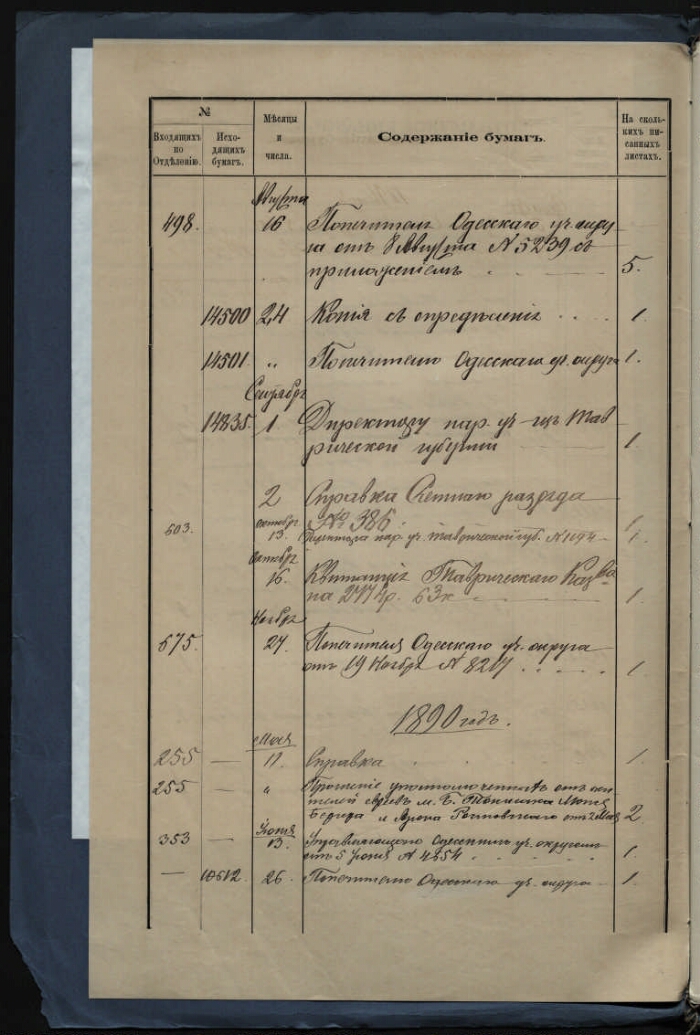 №
Входящихъ
по
Отдѣленію.
Исхо-
дящихъ
бумагъ.
Мѣсяцы
и
числа.
Содержаніе бумагъ.
На сколь-
кихъ пи-
санныхъ
листахъ.
Августа
498. 16 Попечителя Одесскаго уч. окру-
га отъ 8 Августа N 5239 съ
приложеніемъ 5.
14500 24 Копія съ опредѣленія 1.
14501 „ Попечителю Одесскаго уч. округа 1.
Сентября
14835. 1 Директору нар. уч-щъ Тав
рической губерніи 1
2 Справка Счетнаго раздѣла
№ 386. 1
603. октября 13. Директора нар. уч. Таврической губ. N 1194 1.
Октября
16. Квитанція Таврическаго Казн-ва
на 2774 р. 63 к 1.
Ноября
675. 27. Попечителя Одесскаго уч. округа
отъ 19 Ноября N 8217 1.
1890 годъ.
Мая
255 — 11. Справка 1.
255 — „ Прошеніе уполномоченныхъ отъ жи-
телей евреевъ м. Б. Токмака
и отъ 2 Мая 2
Іюня
353 — 13. Управляющаго Одесскимъ уч. округомъ
отъ 5 Іюня N 4554 1.
— 10612. 26. Попечителю Одесскаго уч. округа 1.